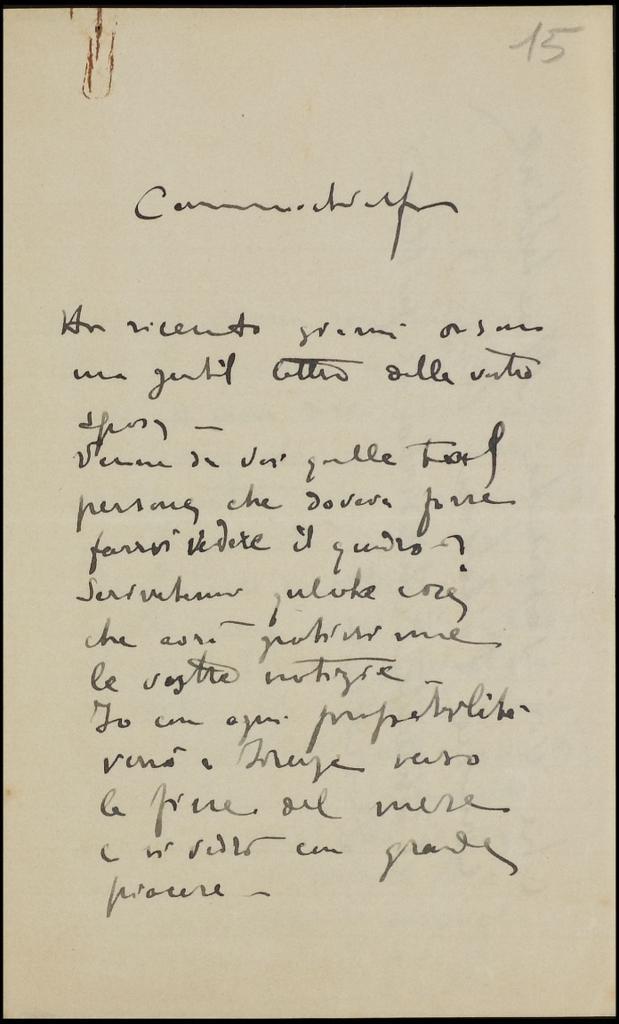 15
Ho ricevuto giorni or sono
una gentil lettera della vostra
sposa —
Venne da voi quella tal
persona che doveva forse
farvi vedere il quadro?
Scrivetemi qualche cosa
che avrò notizie
le vostre notizie —
Io con ogni probabilità
verrò a Firenze verso
la fine del mese
e vi vedrò con grande
piacere —